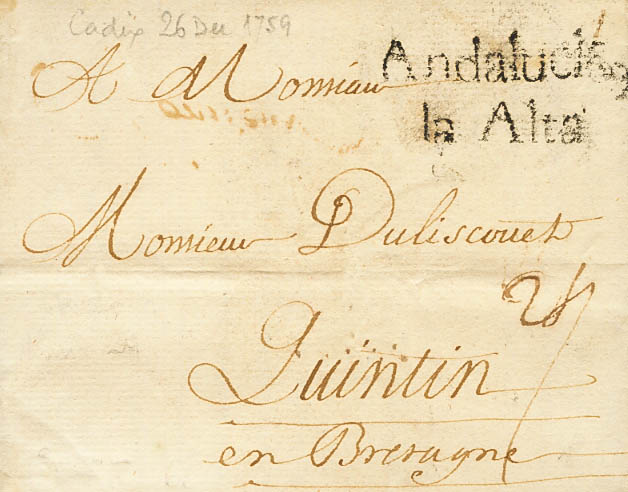 Cadix 26 Dec 1759
Andalucia
A Monsieur
la Alta
Monsieur Duliscouet
Quintin
en Bretagne